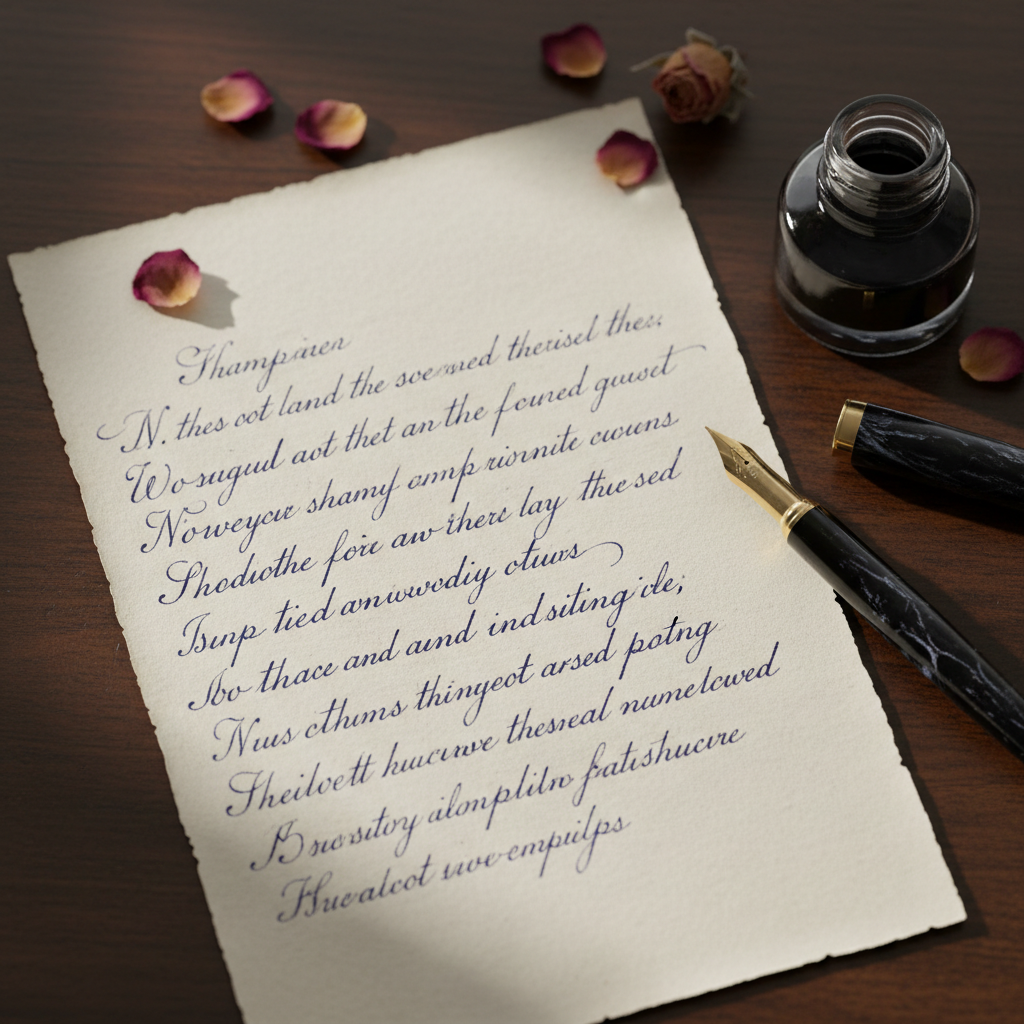 Thampœiren
N. thes cot land the soemed therisel thes:
Wosuguul aot thet an the fcured guuset
Noweycur shamf amp riornite cucuns
Shodiothe foire aw therc lay thuesed
Isinp tied anuwwcdiy otuws
Ibo thace and aund indsiting ide;
Nuus cthums thingeot arsed potng
Sheilvett hucuwe thesreal numelcwed
Bucositoy ailonplitn fatishucire
Hucalcot uwe-empuilps